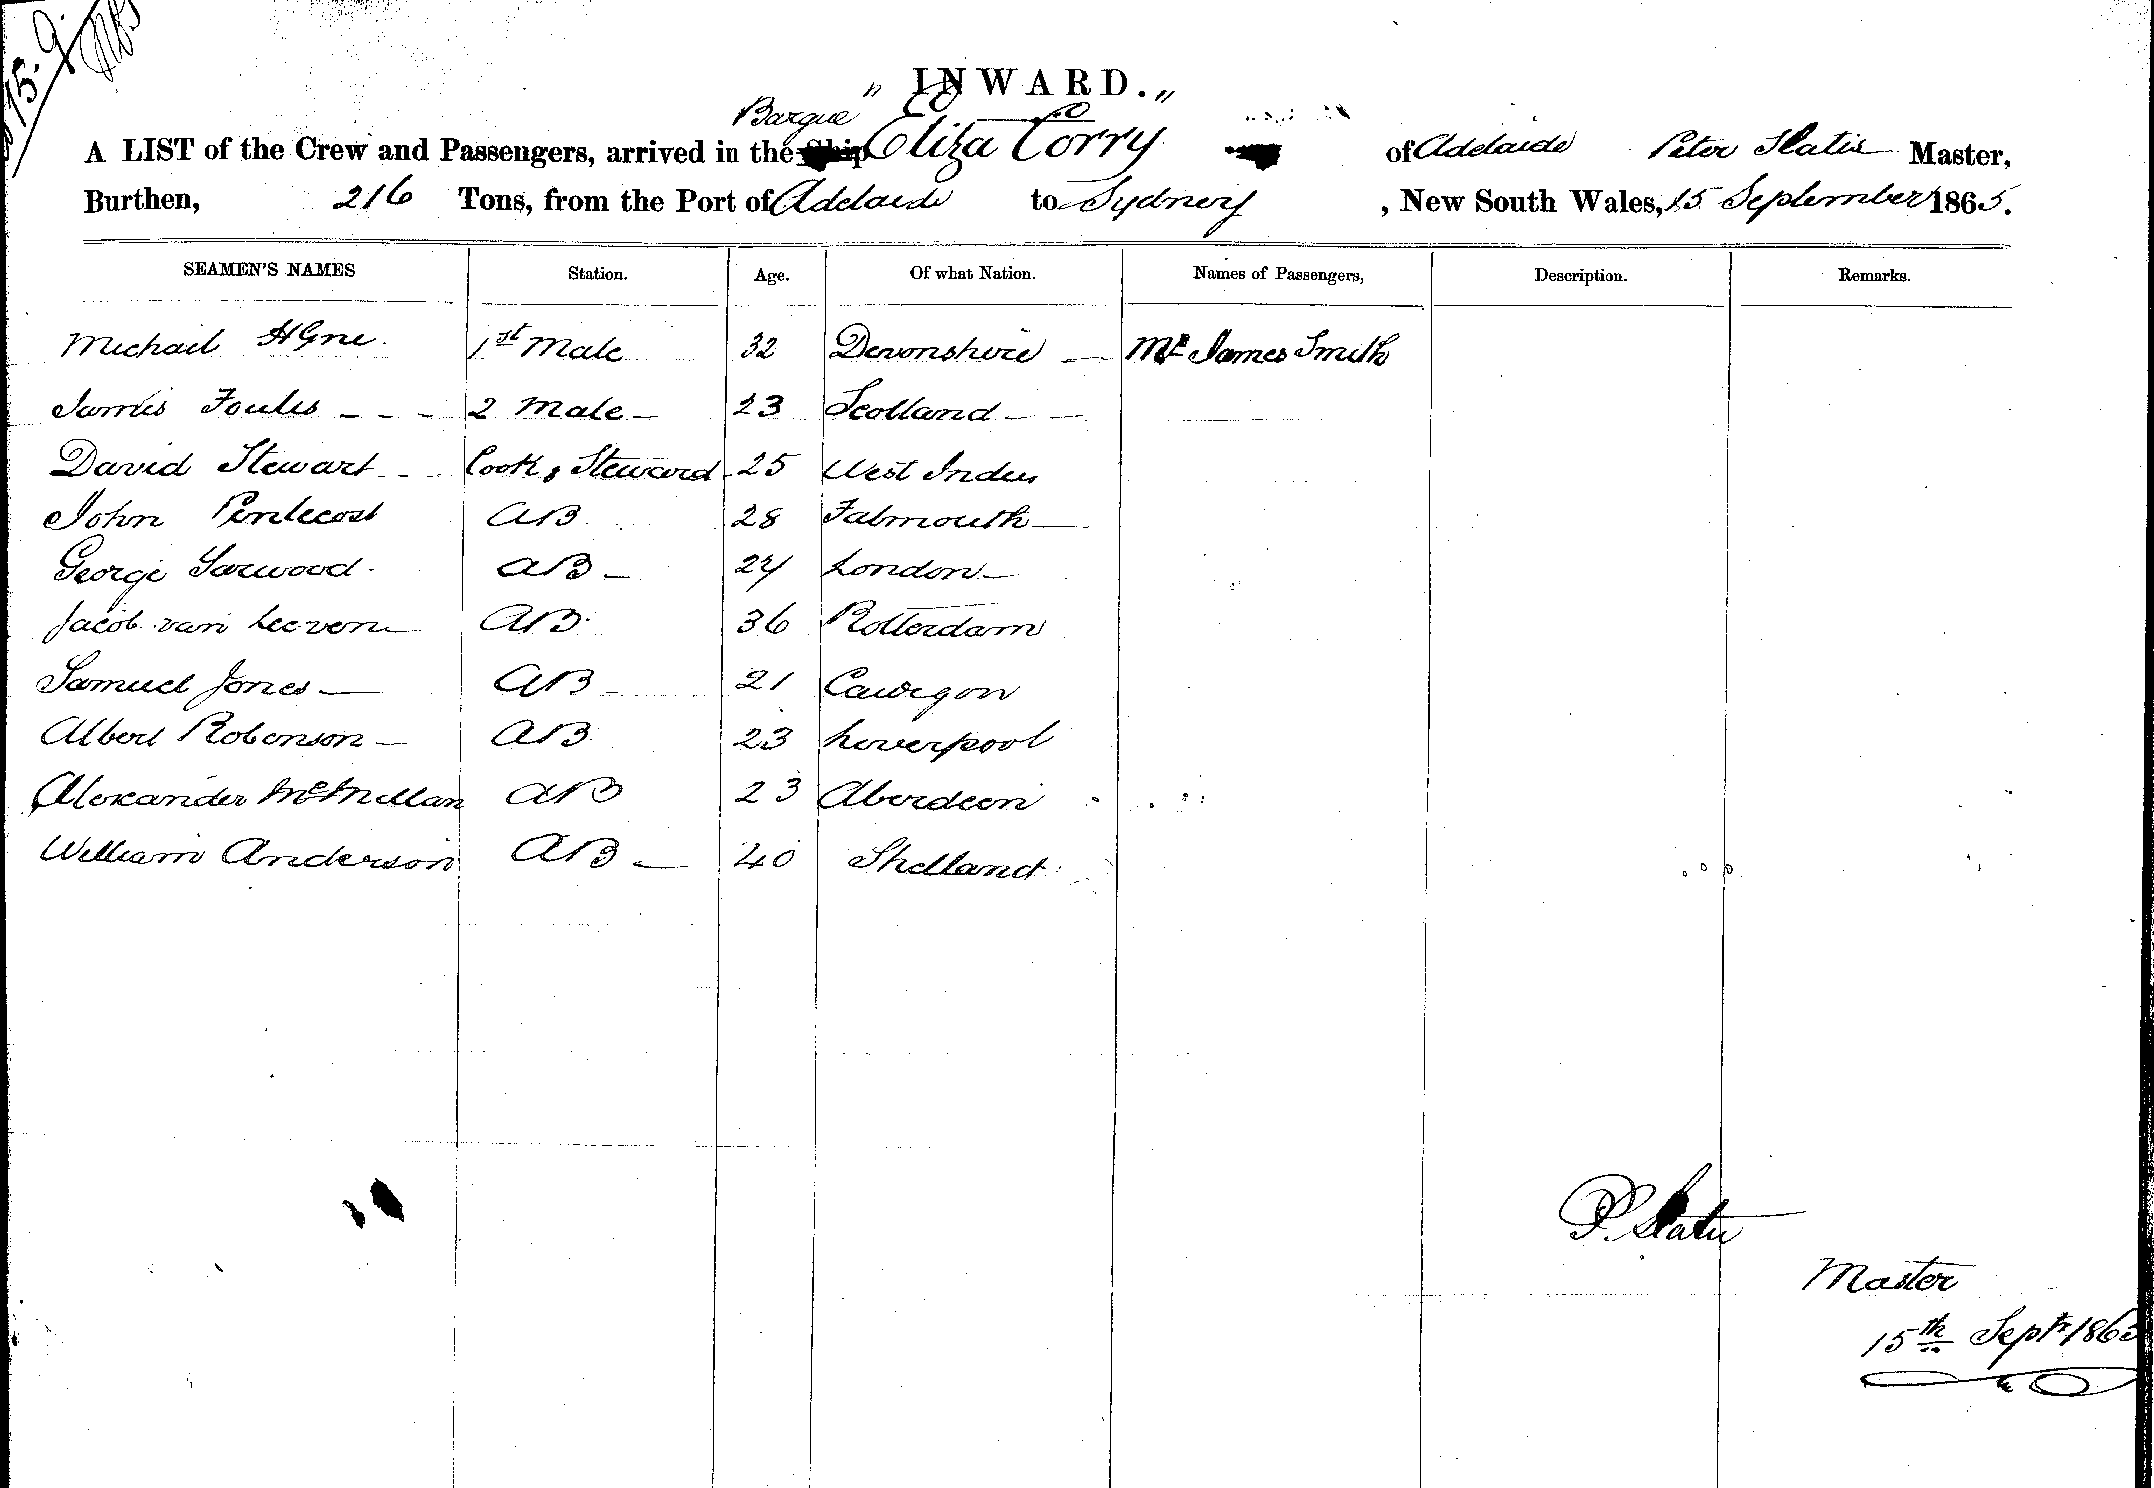 15.9
„ INWARD. „
Barque
A LIST of the Crew and Passengers, arrived in the Ship Eliza Corry of Adelaide Peter Slatie Master,
Burthen, 216 Tons, from the Port of Adelaide to Sydney , New South Wales, 15 September 1865.
SEAMEN'S NAMES Station. Age. Of what Nation. Names of Passengers, Description. Remarks.
Michail 1st Mate 32 Devonshire Mr James Smith
James Foules 2 Mate 23 Scotland
David Stewart Cook & Steward 25 West Indies
John Pentecost AB 28 Falmouth
George Sarwood AB 24 London
Jacob van Leeven AB 36 Rotterdam
Samuel Jones AB 21
Albert Robenson AB 23 Liverpool
Alexander McMillan AB 23 Aberdeen
William Anderson AB 40 Shetland
P. Slatie
Master
15th Septr 1865